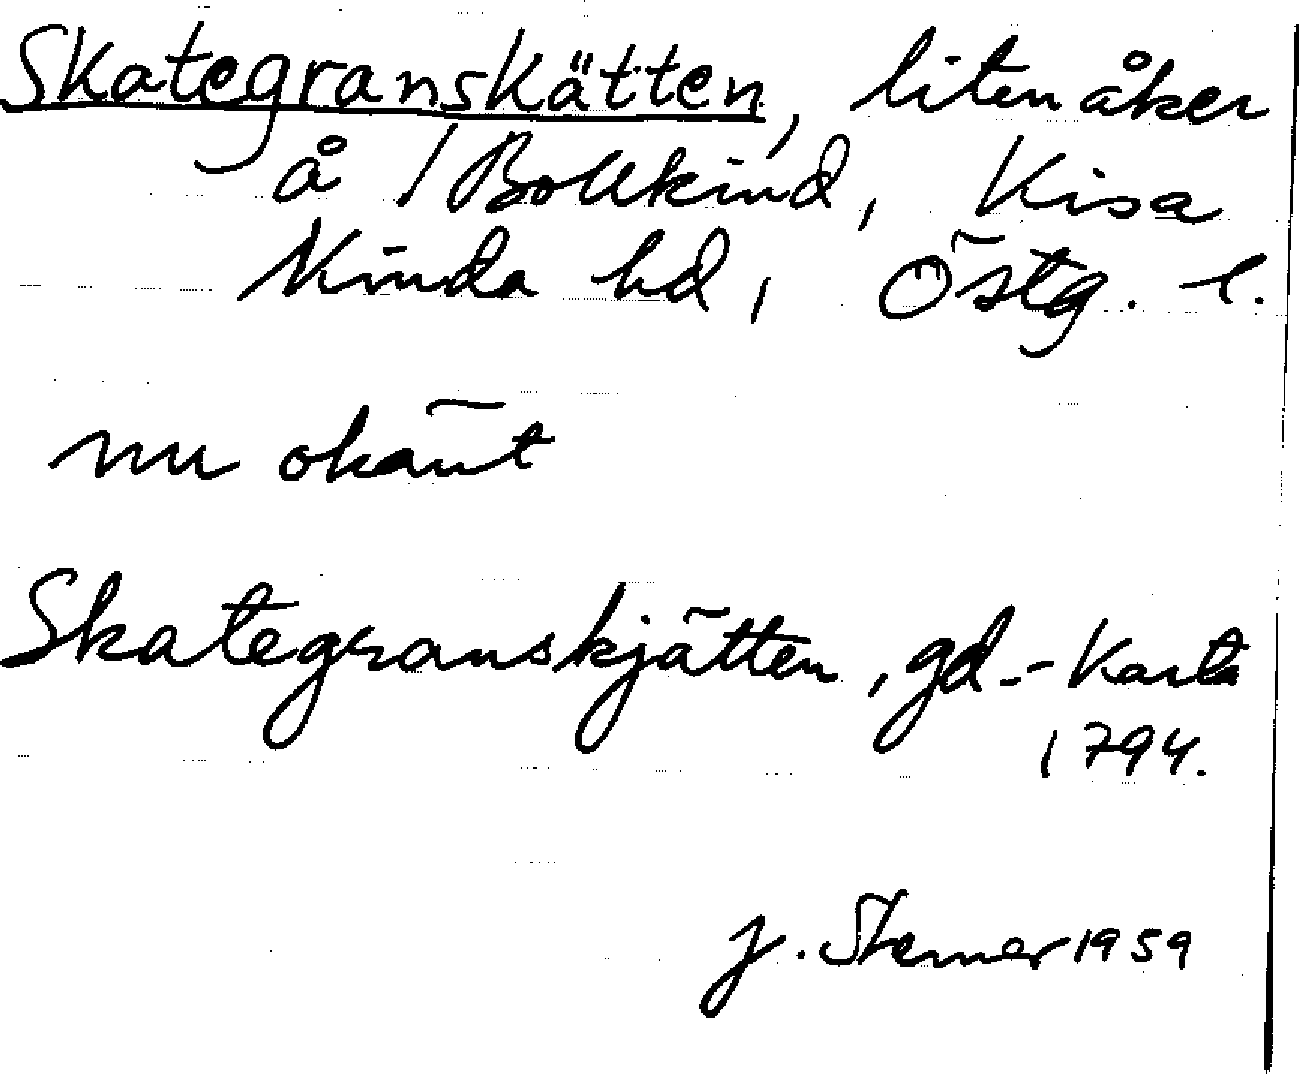 Skategranskätten, liten åker
å / Bollkind, Kisa
Kinda hd, Östg. l.
nu okänt
Skategranskjätten, gd.-Karta
1794.
J. Sterner 1959